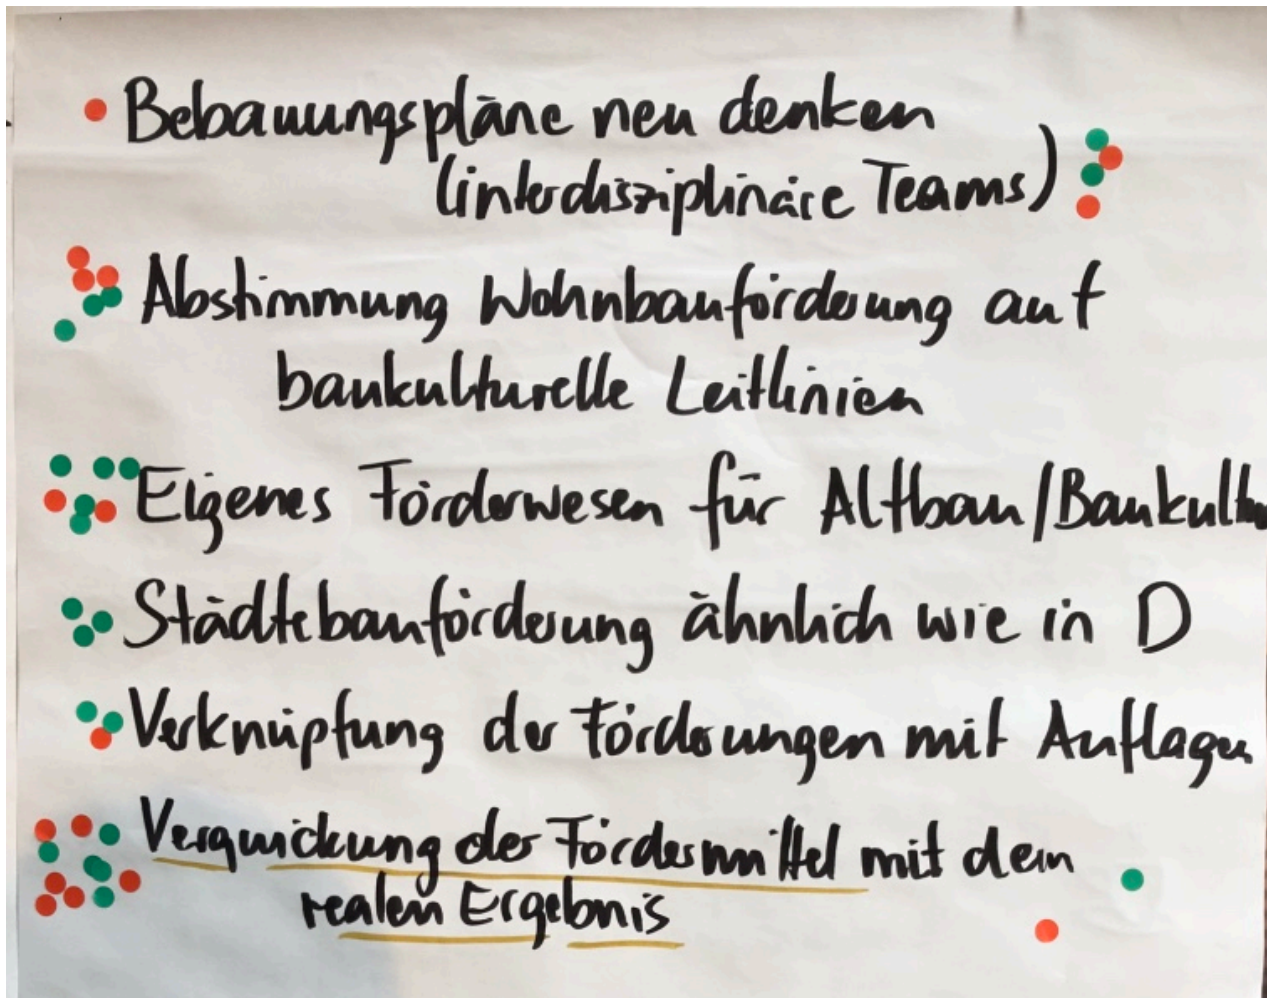 Bebauungspläne neu denken
(interdisziplinäre Teams)
Abstimmung Wohnbauförderung auf
baukulturelle Leitlinien
Eigenes Förderwesen für Altbau/Baukultur
Städtebauförderung ähnlich wie in D
Verknüpfung der Förderungen mit Auflagen
Verquickung der Fördermittel mit dem
realen Ergebnis